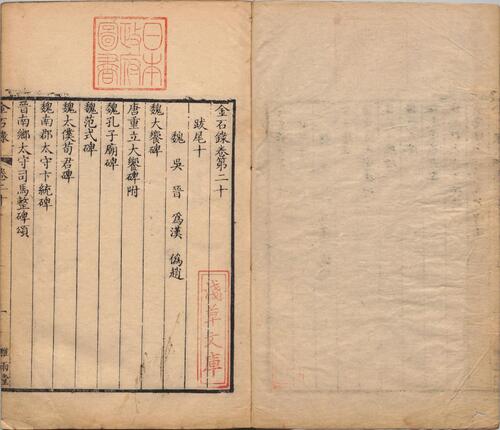 金石錄卷第二十
跋尾十
魏 吳 晉 爲漢 僞趙
魏大饗碑
唐重立大饗碑附
魏孔子廟碑
魏范式碑
魏太僕荀君碑
魏南郡太守卞統碑
晉南鄉太守司馬整碑頌
金石錄 卷二十
一
雅雨堂
日本
政府
圖書
淺草文庫